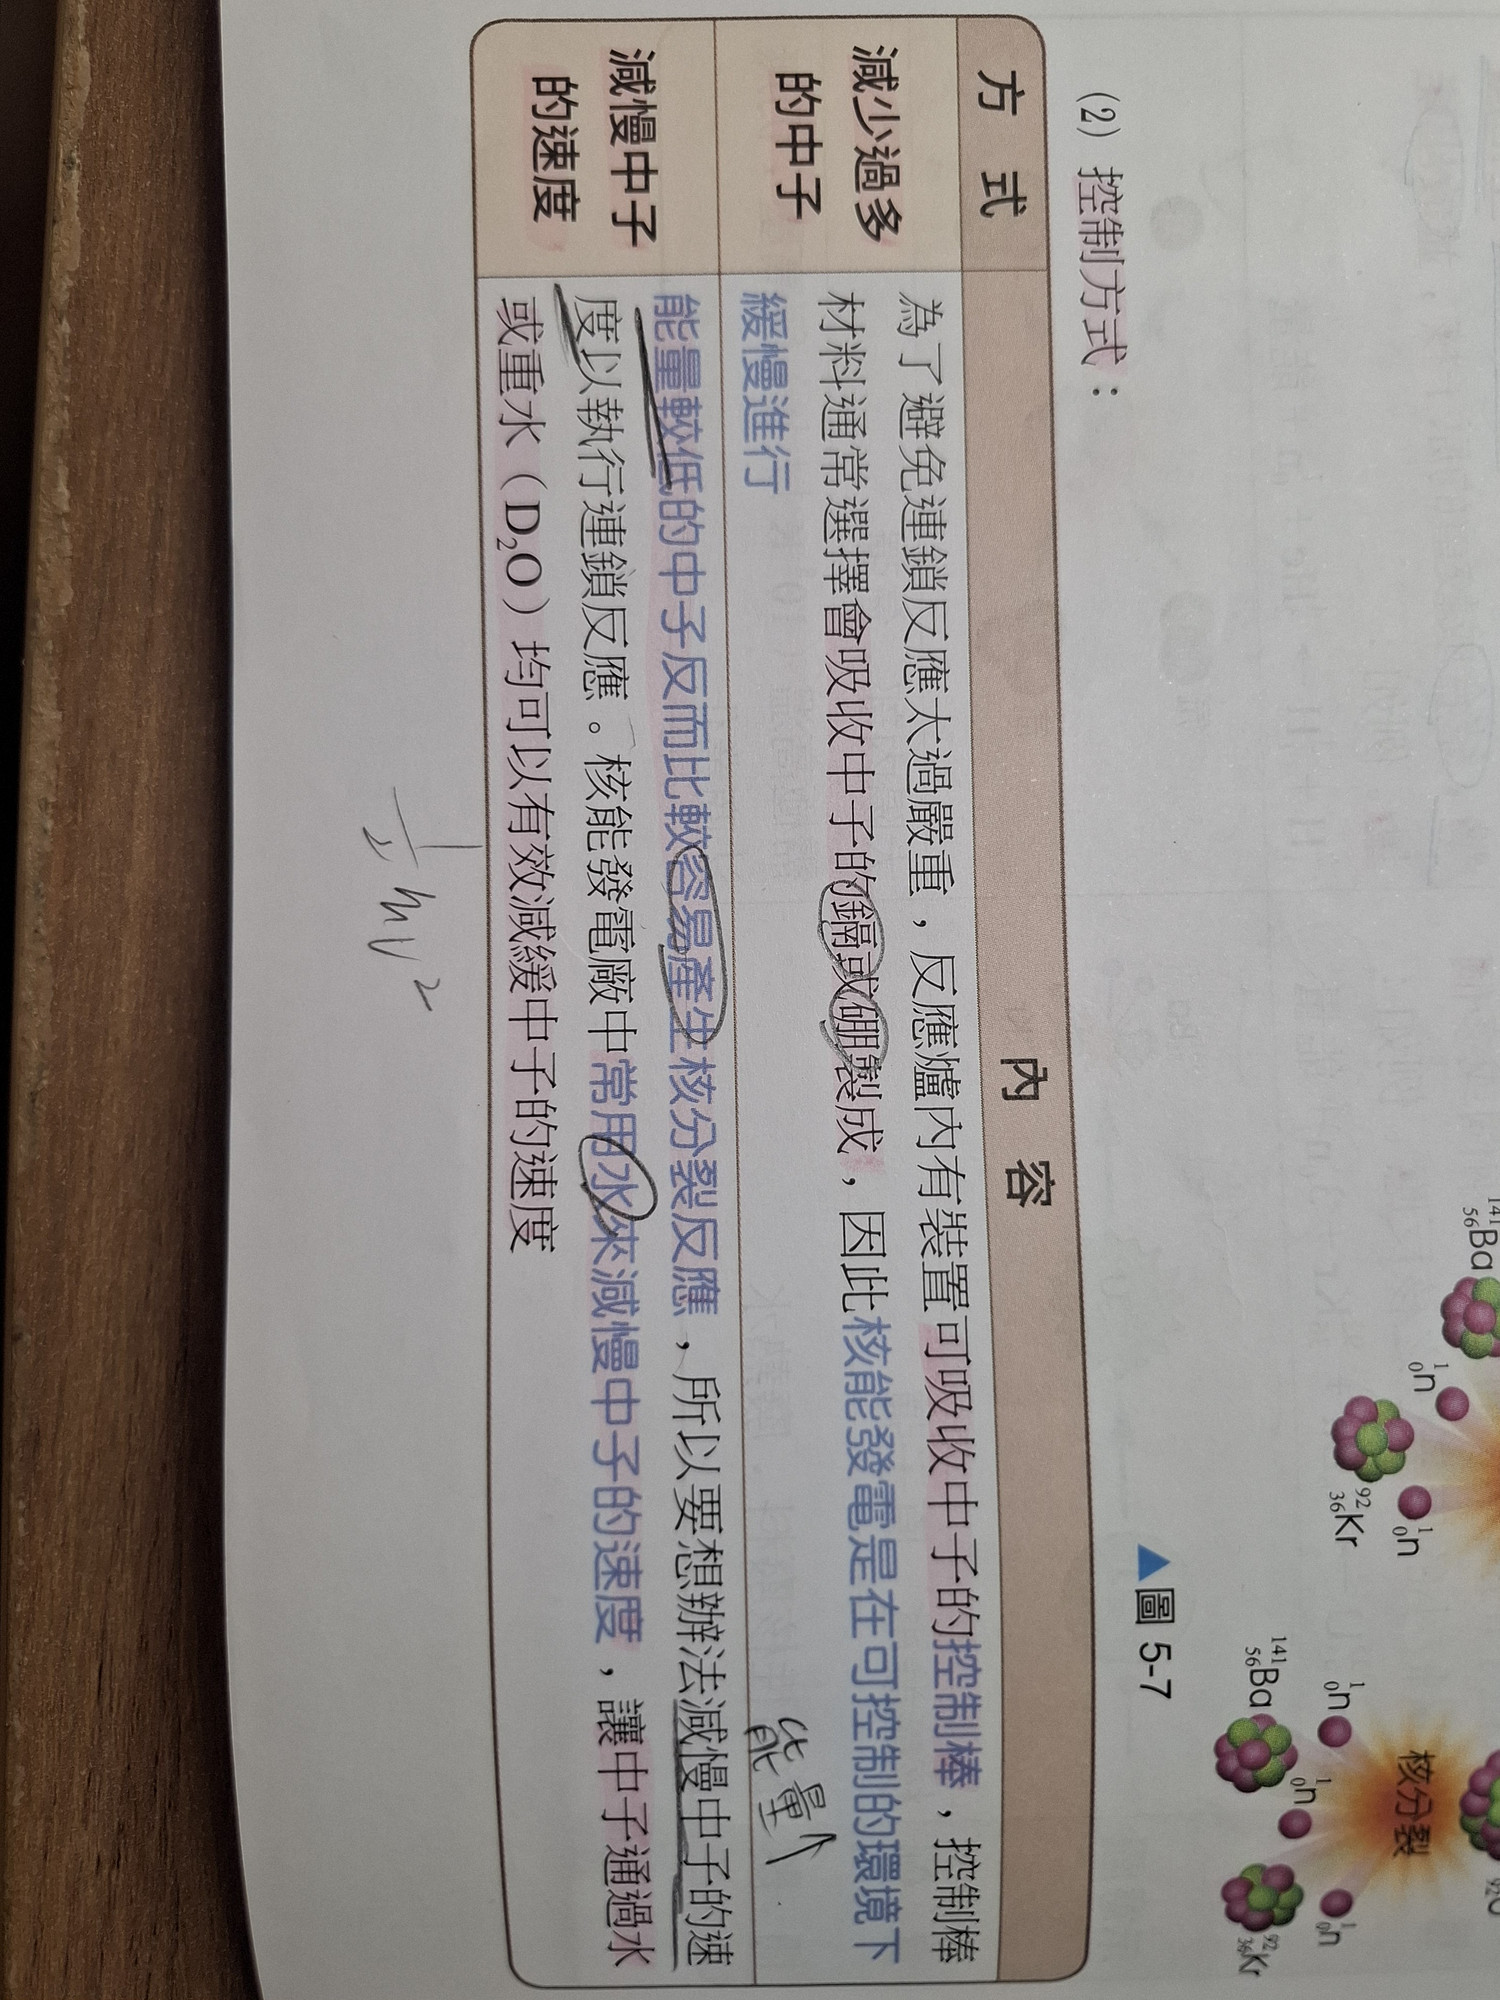 ¹⁴¹₅₆Ba
¹₀n
⁹²₃₆Kr
¹₀n
核分裂
¹⁴¹₅₆Ba
¹₀n
¹₀n
¹₀n
⁹²₃₆Kr
▲圖 5-7
(2) 控制方式：
方 式
內 容
減少過多
的中子
為了避免連鎖反應太過嚴重，反應爐內有裝置可吸收中子的控制棒，控制棒
材料通常選擇會吸收中子的鎘或硼製成，因此核能發電是在可控制的環境下
緩慢進行
能量
減慢中子
的速度
能量較低的中子反而比較容易產生核分裂反應，所以要想辦法減慢中子的速
度以執行連鎖反應。核能發電廠中常用水來減慢中子的速度，讓中子通過水
或重水（D₂O）均可以有效減緩中子的速度